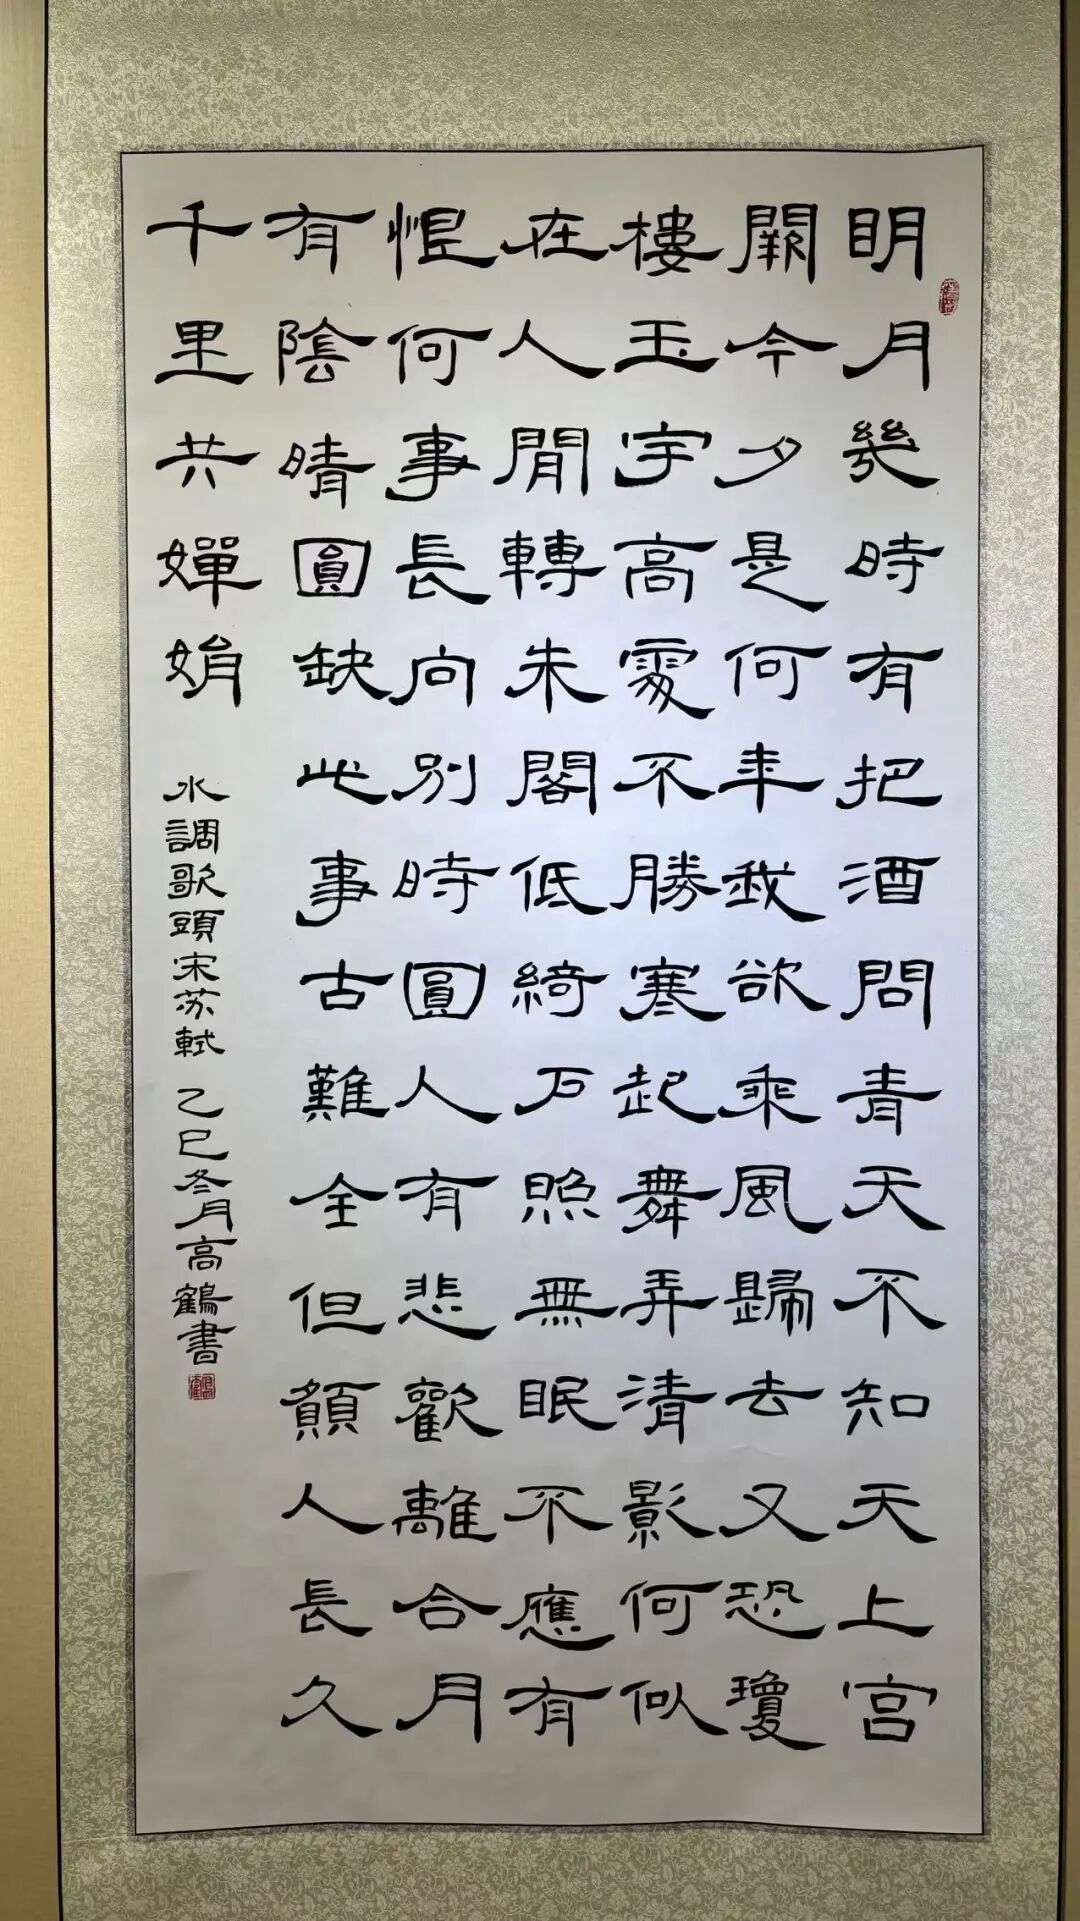 明月幾時有把酒問青天不知天上宮
闕今夕是何年我欲乘風歸去又恐瓊
樓玉宇高處不勝寒起舞弄清影何似
在人閒轉朱閣低綺户照無眠不應有
恨何事長向別時圓人有悲歡離合月
有陰晴圓缺此事古難全但願人長久
千里共嬋娟
水調歌頭宋苏軾 乙巳冬月高鶴書